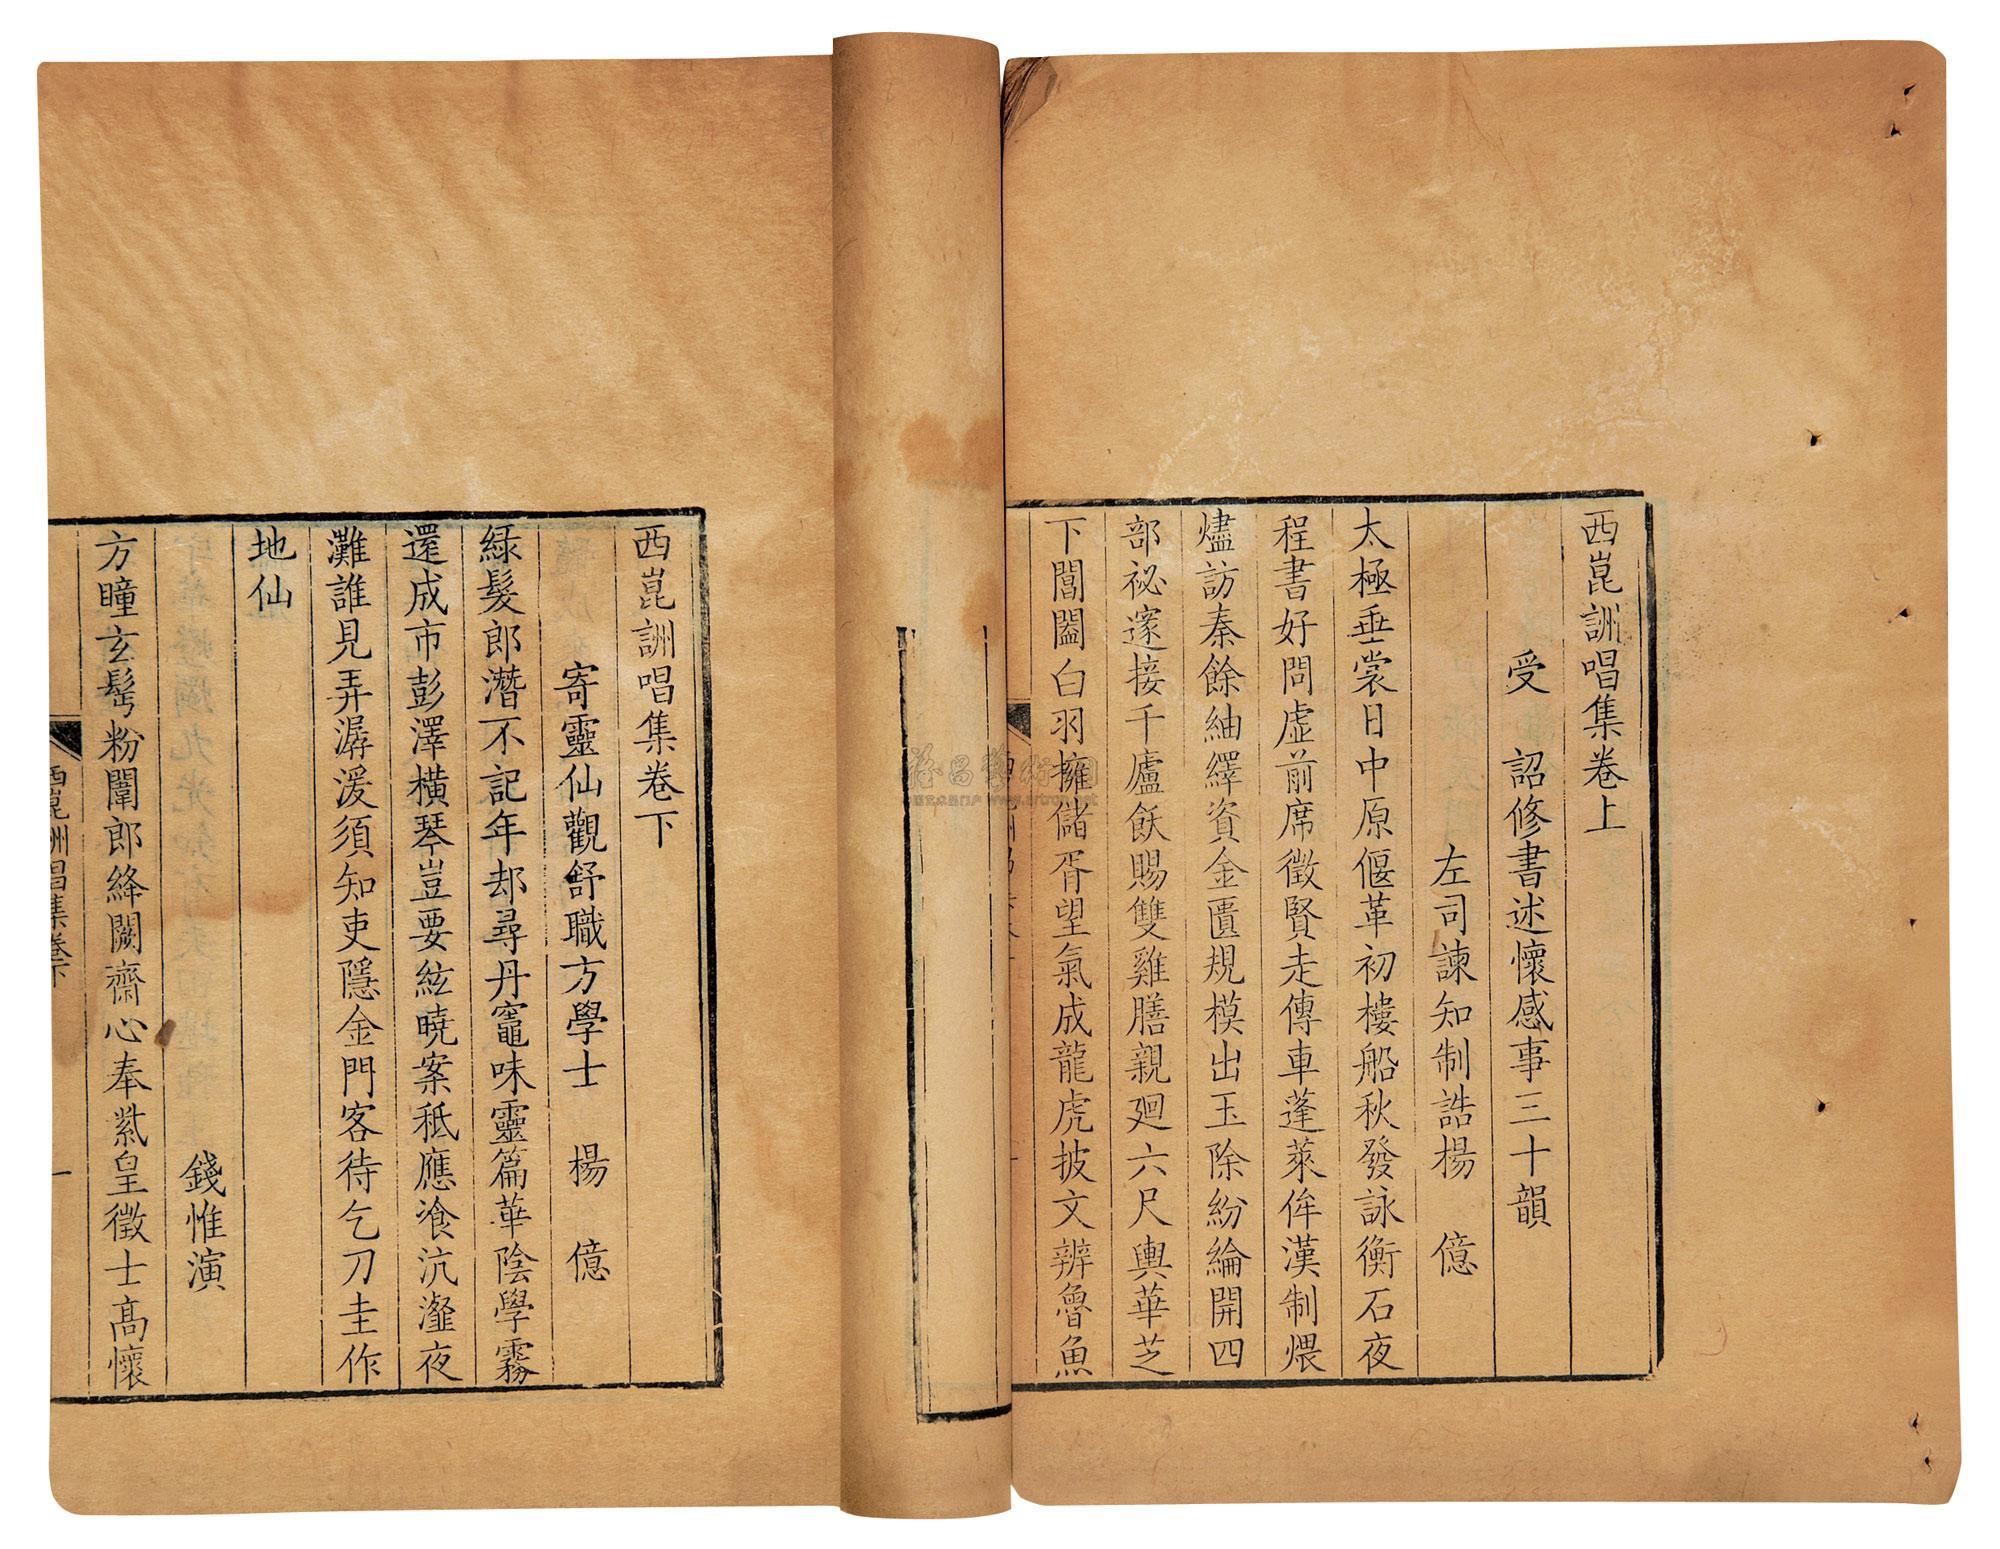 西崑詶唱集卷上
受　詔修書述懷感事三十韻
左司諫知制誥楊　億
太極垂裳日中原偃革初樓船秋發詠衡石夜
程書好問虛前席徵賢走傳車蓬萊侔漢制煨
燼訪秦餘紬繹資金匱規模出玉除紛綸開四
部祕邃接千廬飫賜雙雞膳親廻六尺輿華芝
下閶闔白羽擁儲胥望氣成龍虎披文辨魯魚
西崑詶唱集卷下
寄靈仙觀舒職方學士　楊　億
緑髮郎潛不記年却尋丹竈味靈篇華陰學霧
還成市彭澤横琴豈要絃曉案秖應飡沆瀣夜
灘誰見弄潺湲須知吏隱金門客待乞刀圭作
地仙
錢惟演
方瞳玄髩粉闈郎絳闕齋心奉紫皇徵士髙懷
西崑詶唱集卷下
一